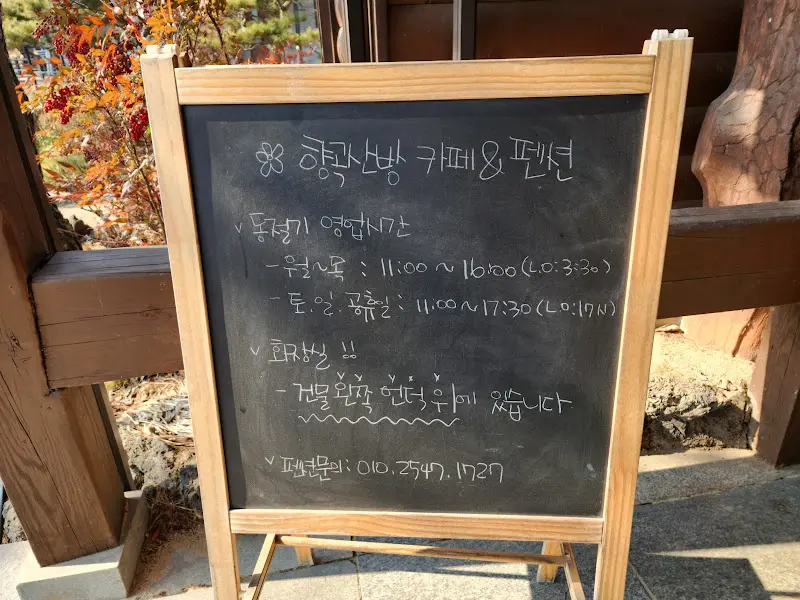 향곡산방 카페 & 펜션
v 동절기 영업시간
- 월~목 : 11:00 ~ 16:00 (L.O:3:30)
- 토.일.공휴일 : 11:00 ~ 17:30 (L.O:17시)
v 화장실 !!
- 건물 왼쪽 언덕 위에 있습니다
v 펜션문의 : 010.2547.1727